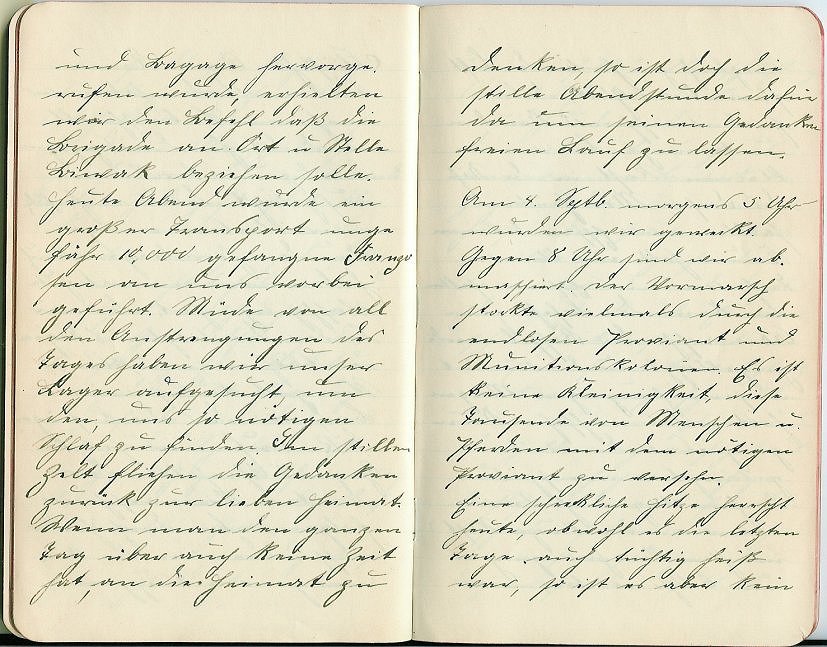 und Bagage hervorge-
rufen wurde, erhielten
wir den Befehl daß die
Brigade an Ort u Stelle
Biwak beziehen solle.
Heute Abend wurde ein
großer Transport unge
fähr 10,000 gefangne Franzo
sen an uns vorbei
geführt. Müde von all
den Anstrengungen des
Tages haben wir unser
Lager aufgesucht, um
den, uns so nötigen
Schlaf zu finden. Im stillen
Zelt fliehen die Gedanken
zurück zur lieben Heimat.
Wenn man den ganzen
Tag über auch keine Zeit
hat, an die Heimat zu
denken, so ist doch die
stille Abendstunde dafür
da um seinen Gedanken
freien Lauf zu lassen.
Am 4. Sptb. morgens 5 Uhr
wurden wir geweckt.
Gegen 8 Uhr sind wir ab-
marschiert. Der Vormarsch
stockte vielmals durch die
endlosen Proviant und
Munitionskolonnen. Es ist
keine Kleinigkeit, diese
Tausende von Menschen u.
Pferden mit dem nötigen
Proviant zu versehn.
Eine schreckliche Hitze herrscht
heute, obwohl es die letzten
Tage auch tüchtig heiß
war, so ist es aber kein